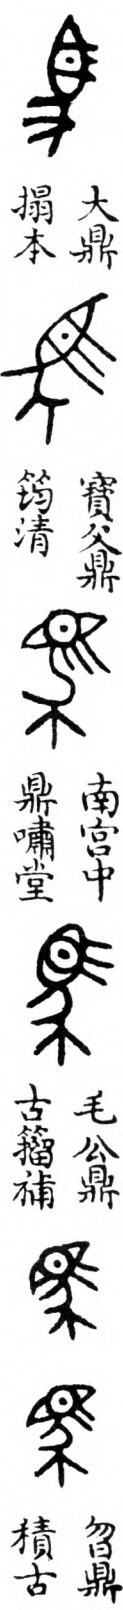 大鼎
搨本
寶父鼎
筠清
南宫中
鼎嘯堂
毛公鼎
古籀補
曶鼎
積古